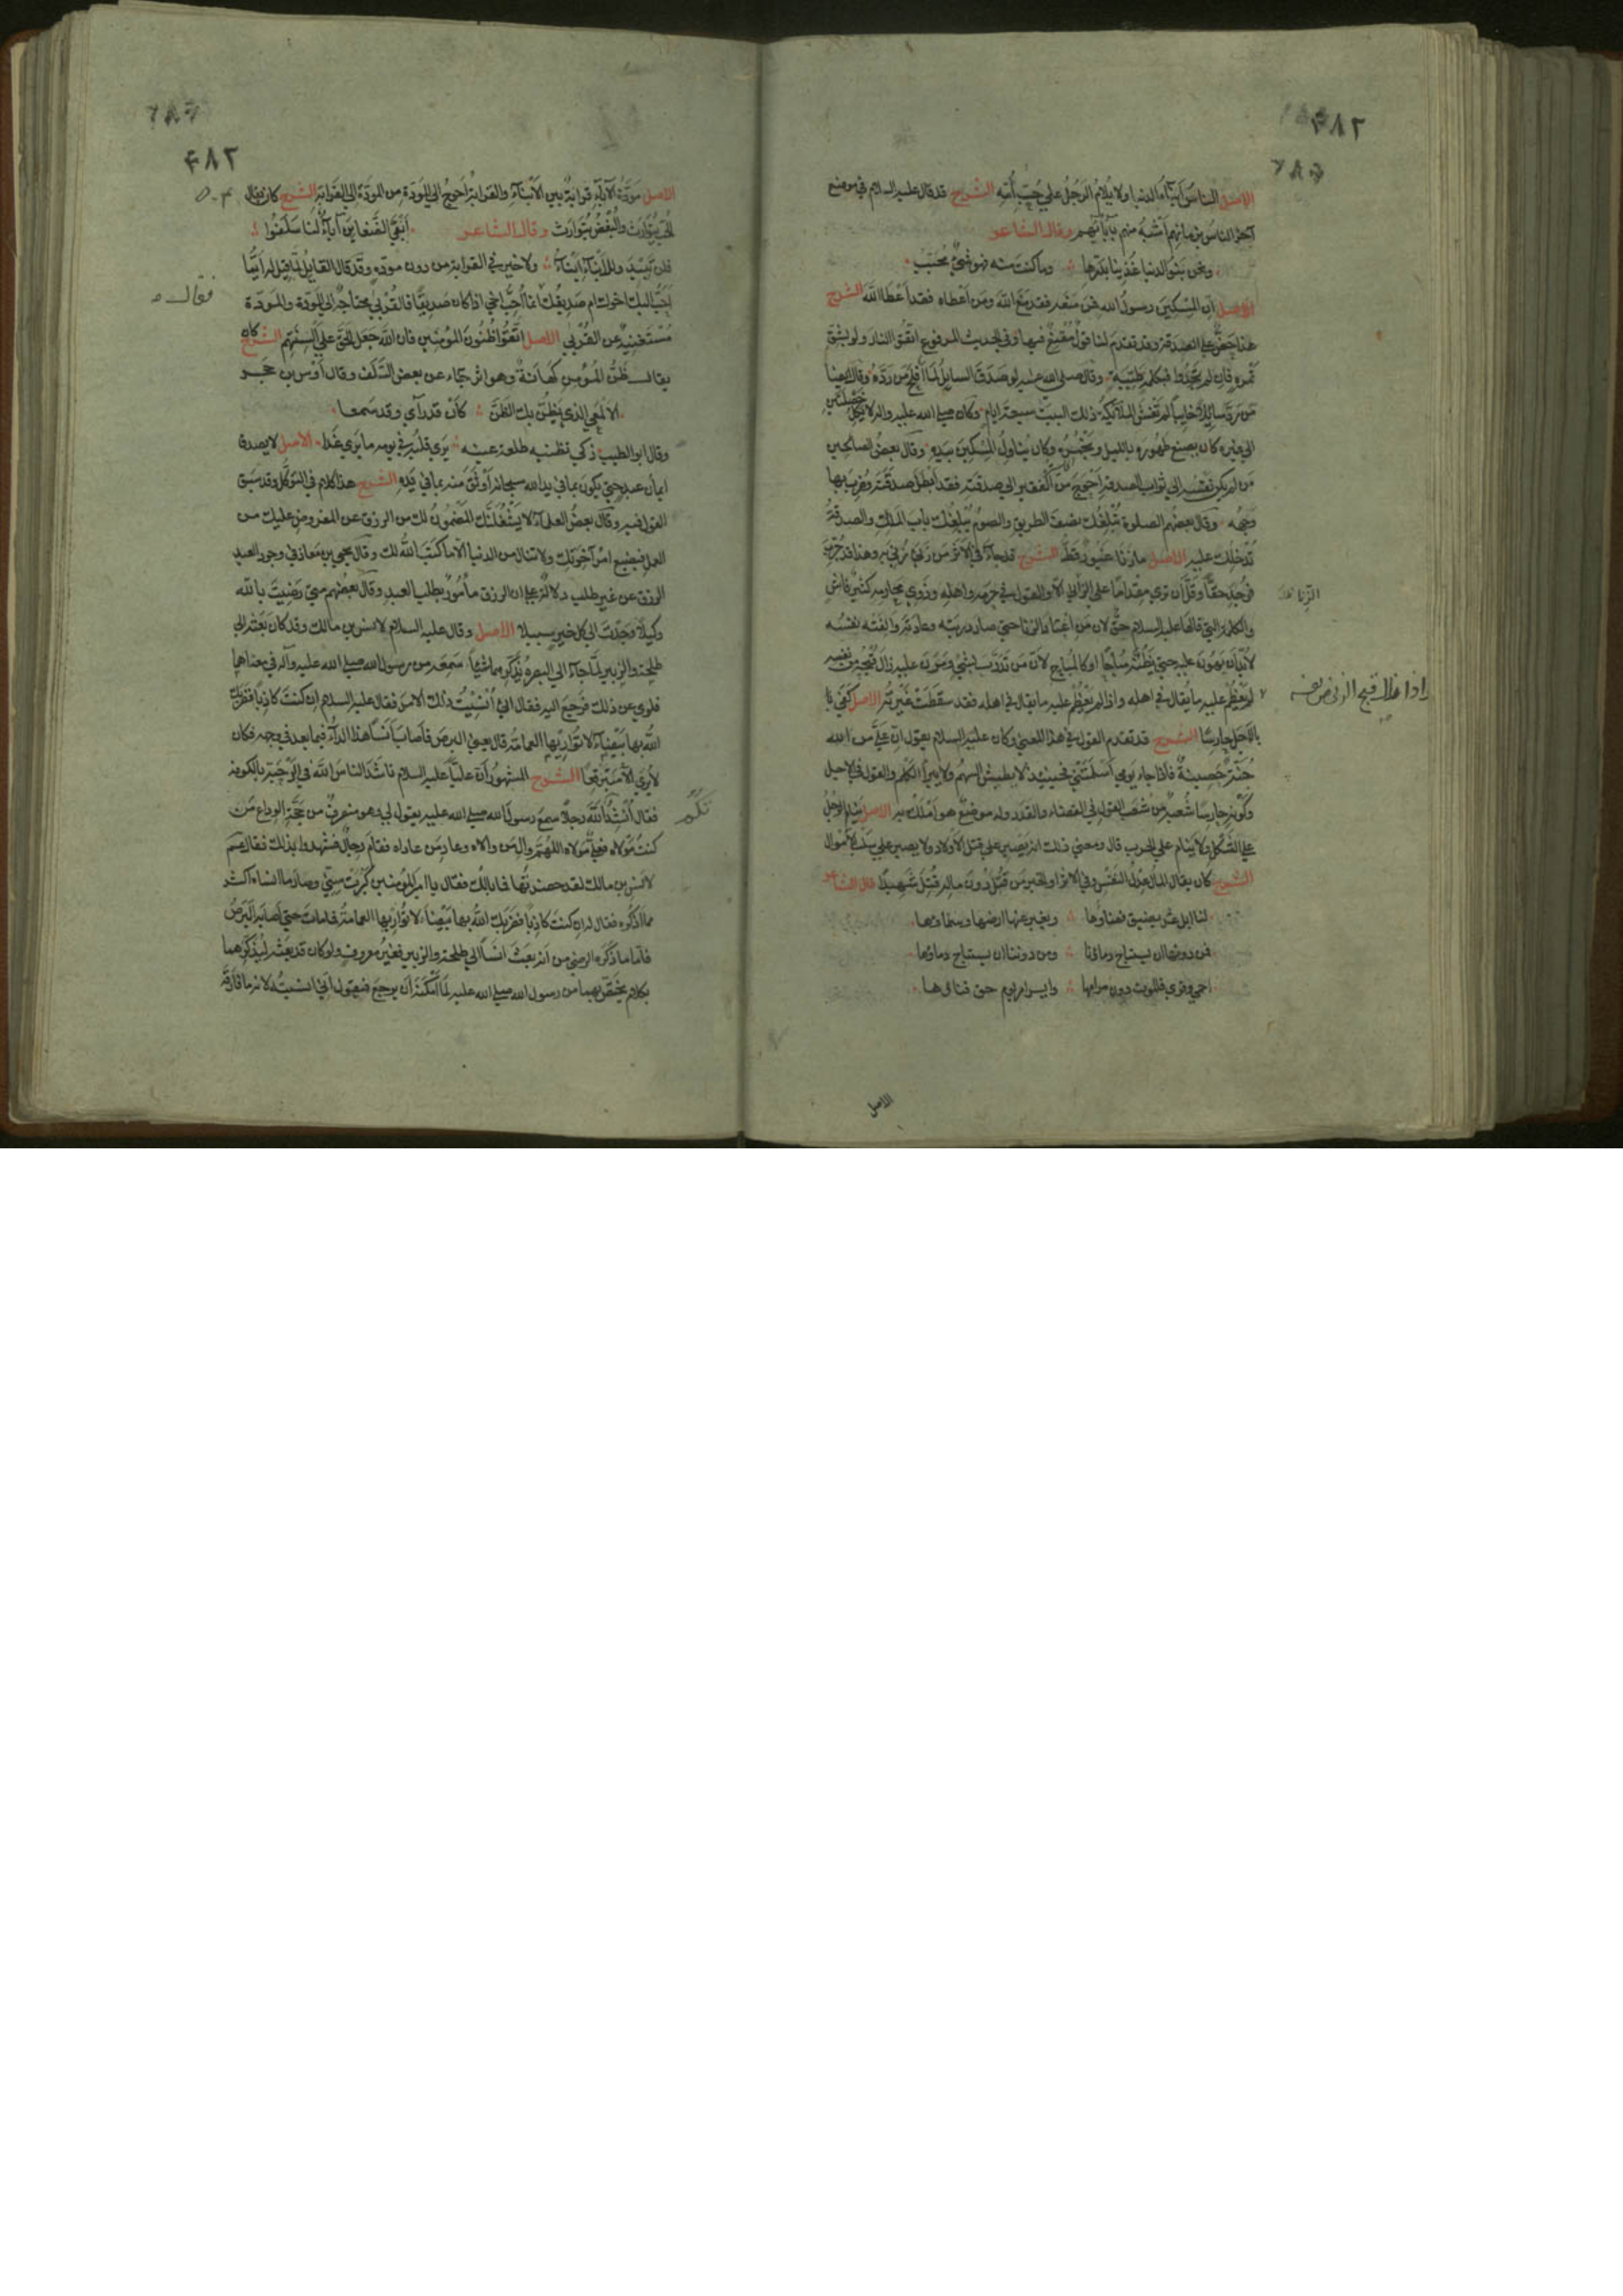 ٤٨٢
الاصل الناس أبناء الدنيا ولا يلام الرجل على حب أمه الشرح قد قال عليه السلام في موضع
آخر الناس بزمانهم أشبه منهم بآبائهم وقال الشاعر
ونحن بنو الدنيا غذينا بدرها وما كنت منه فهو شيء محبب
الاصل ان المسكين رسول الله فمن منعه فقد منع الله ومن أعطاه فقد أعطا الله الشرح
هذا حض على الصدقة وقد تقدم لنا قول مقنع فيها وفي الحديث المرفوع اتقوا النار ولو بشق
تمرة فان لم تجدوا فبكلمة طيبة وقال صلى الله عليه لو صدق السايل لما أفلح من رده وقال ايضا
من رد سائلا خايبا لم تغش الملائكة ذلك البيت سبعة ايام وكان صلى الله عليه واله لا يكل خصلتين
الى غيره كان يصنع طهوره بالليل ويخمره وكان يناول المسكين بيده وقال بعض الصالحين
من لم يكن نفسه الى ثواب الصدقة أحوج من الفقير الى صدقته فقد ابطل صدقته وضرب بها
وجهه وقال بعضهم الصلوة تبلغك نصف الطريق والصوم يبلغك باب الملك والصدقة
تدخلك عليه الاصل ما زنا غيور قط الشرح قد جاء في الاثر من زنى زني به وهذا قد جرب
فوجد حقا وقل أن ترى مقداما على الزنا الا والقول في حرمه واهله وذوي محارمه كثير فاش
والكلمة التي قالها عليه السلام حق لان من اعتاد الزنا حتى صار دربته وعادته والفته نفسه
لا بد أن يهون عليه حتى يظنه مباحا او كالمباح لأن من تدرب بشيء ومرن عليه زال قبحه من نفسه
لم يعظم عليه ما يقال في اهله واذا لم يعظم عليه ما يقال في اهله فقد سقطت غيرته الاصل كفى با
بالأجل حارسا الشرح قد تقدم القول في هذا المعنى وكان عليه السلام يقول ان علي من الله
جنة حصينة فاذا جاء يومي أسلمتني فحينئذ لا يطيش السهم ولا يبرأ الكلم والقول في الاجل
وكونه حارسا شعبة من شعب القول في القضاء والقدر وله موضع هو أملك به الاصل ينام الرجل
على الثكل ولا ينام على الحرب قال ومعنى ذلك انه يصبر على قتل الأولاد ولا يصبر على سلب الأموال
الشرح كان يقال المال عدل النفس وفي الاثر والخبر من قتل دون ماله قتل شهيدا قال الشاعر
لنا ابل غر يضيق فضاؤها ويغبر عنها ارضها وسماؤها
فمن دونها ان يستباح دماؤنا ومن دوننا ان يستباح دماؤها
احمى وقرى فالموت دون مرامها وايسر امر يوم حق فناؤها
الزنا
واذا زال قبح الزنى من نفسه
الاصل
٤٨٢
الاصل مودة الآباء قرابة بين الأبناء والقرابة أحوج الى المودة من المودة الى القرابة الشرح كان يقال
الحب يتوارث والبغض يتوارث وقال الشاعر أبقى الضغاين آباء لنا سلفوا
فلن تبيد وللآباء أبناء ولا خير في القرابة من دون مودة وقد قال القايل لما قيل له أيما
أحب اليك اخوك ام صديقك انما أحب اخي اذا كان صديقا فالقربى محتاجة الى المودة والمودة
مستغنية عن القربى الاصل اتقوا ظنون المؤمنين فان الله جعل الحق على السنتهم الشرح كان
يقال ظن المؤمن كهانة وهو اثر جاء عن بعض السلف وقال أوس بن حجر
الالمعي الذي يظن بك الظن كأن قد رأى وقد سمعا
وقال ابو الطيب ذكي تظنيه طليعة عينه يرى قلبه في يومه ما يرى غدا الاصل لا يصدق
ايمان عبد حتى يكون بما في يد الله سبحانه أوثق منه بما في يده الشرح هذا كلام في التوكل وقد سبق
القول فيه وقال بعض العلماء لا يشغلنك المضمون لك من الرزق عن المفروض عليك من
العمل فيضيع امر آخرتك ولا تنال من الدنيا الا ما كتب الله لك وقال يحيى بن معاذ في وجود العبد
الرزق عن غير طلب دلالة على ان الرزق مأمور بطلب العبد وقال بعضهم متى رضيت بالله
وكيلا وجدت الى كل خير سبيلا الاصل وقال عليه السلام لانس بن مالك وقد كان بعثه الى
طلحة والزبير لما جاء الى البصرة يذكرهما شيئا سمعه من رسول الله صلى الله عليه وآله في معناهما
فلوى عن ذلك فرجع اليه فقال اني أنسيت ذلك الامر فقال عليه السلام ان كنت كاذبا فضربك
الله بها بيضاء لا تواريها العمامة قال يعني البرص فأصاب أنسا هذا الداء فيما بعد في وجهه فكان
لا يرى الا متبرقعا الشرح المشهور أن عليا عليه السلام ناشد الناس الله في الرحبة بالكوفة
فقال أنشد الله رجلا سمع رسول الله صلى الله عليه يقول لي وهو منصرف من حجة الوداع من
كنت مولاه فعلي مولاه اللهم وال من والاه وعاد من عاداه فقام رجال فشهدوا بذلك فقال عم
لانس بن مالك لقد حضرتها فما بالك فقال يا امير المؤمنين كبرت سني وصار ما انساه اكثر
مما اذكره فقال له ان كنت كاذبا فضربك الله بها بيضاء لا تواريها العمامة فما مات حتى أصابه البرص
فاما ما ذكره الرضي من انه بعث انسا الى طلحة والزبير فغير معروف ولو كان قد بعثه ليذكرهما
بكلام يختص بهما من رسول الله صلى الله عليه لما أمكنه أن يرجع فيقول اني انسيته لانه ما فارقه
فقال